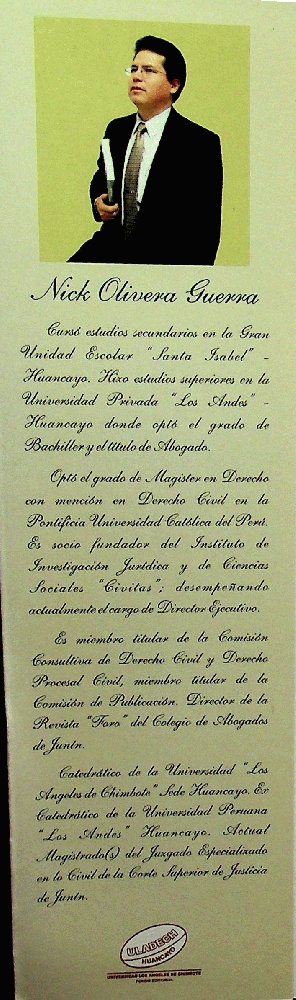 Nick Olivera Guerra
Cursó estudios secundarios en la Gran
Unidad Escolar "Santa Isabel" -
Huancayo. Hizo estudios superiores en la
Universidad Privada "Los Andes" -
Huancayo donde optó el grado de
Bachiller y el título de Abogado.
Optó el grado de Magister en Derecho
con mención en Derecho Civil en la
Pontificia Universidad Católica del Perú.
Es socio fundador del Instituto de
Investigación Jurídica y de Ciencias
Sociales "Civitas"; desempeñando
actualmente el cargo de Director Ejecutivo.
Es miembro titular de la Comisión
Consultiva de Derecho Civil y Derecho
Procesal Civil, miembro titular de la
Comisión de Publicación. Director de la
Revista "Foro" del Colegio de Abogados
de Junín.
Catedrático de la Universidad "Los
Angeles de Chimbote" Sede Huancayo. Ex
Catedrático de la Universidad Peruana
"Los Andes" Huancayo. Actual
Magistrado(s) del Juzgado Especializado
en lo Civil de la Corte Superior de Justicia
de Junín.
ULADECH
HUANCAYO
UNIVERSIDAD LOS ANGELES DE CHIMBOTE
FONDO EDITORIAL